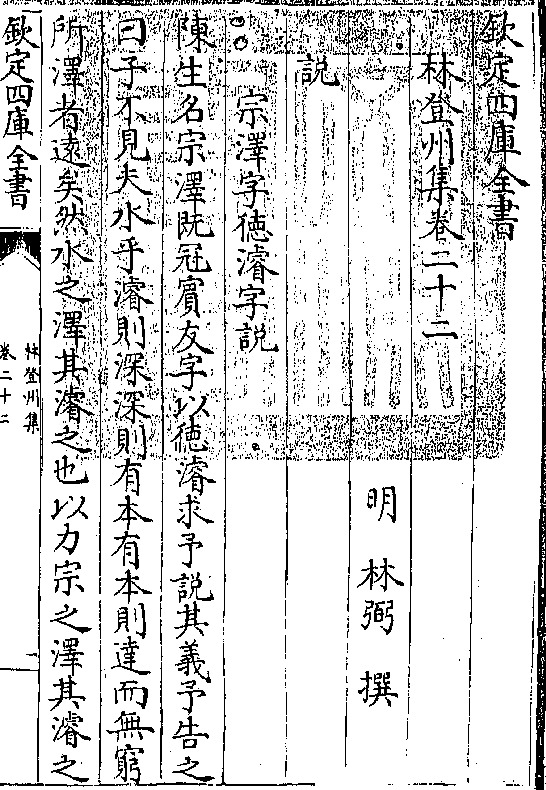 欽定四庫全書
林登州集卷二十二
明 林弼 撰
説
宗澤字徳濬字説
陳生名宗澤既冠賓友字以徳濬求予説其義予告之
曰子不見夫水乎濬則深深則有本有本則達而無窮
所澤者遠矣然水之澤其濬之也以力宗之澤其濬之
欽定四庫全書
林登州集
卷二十二
一